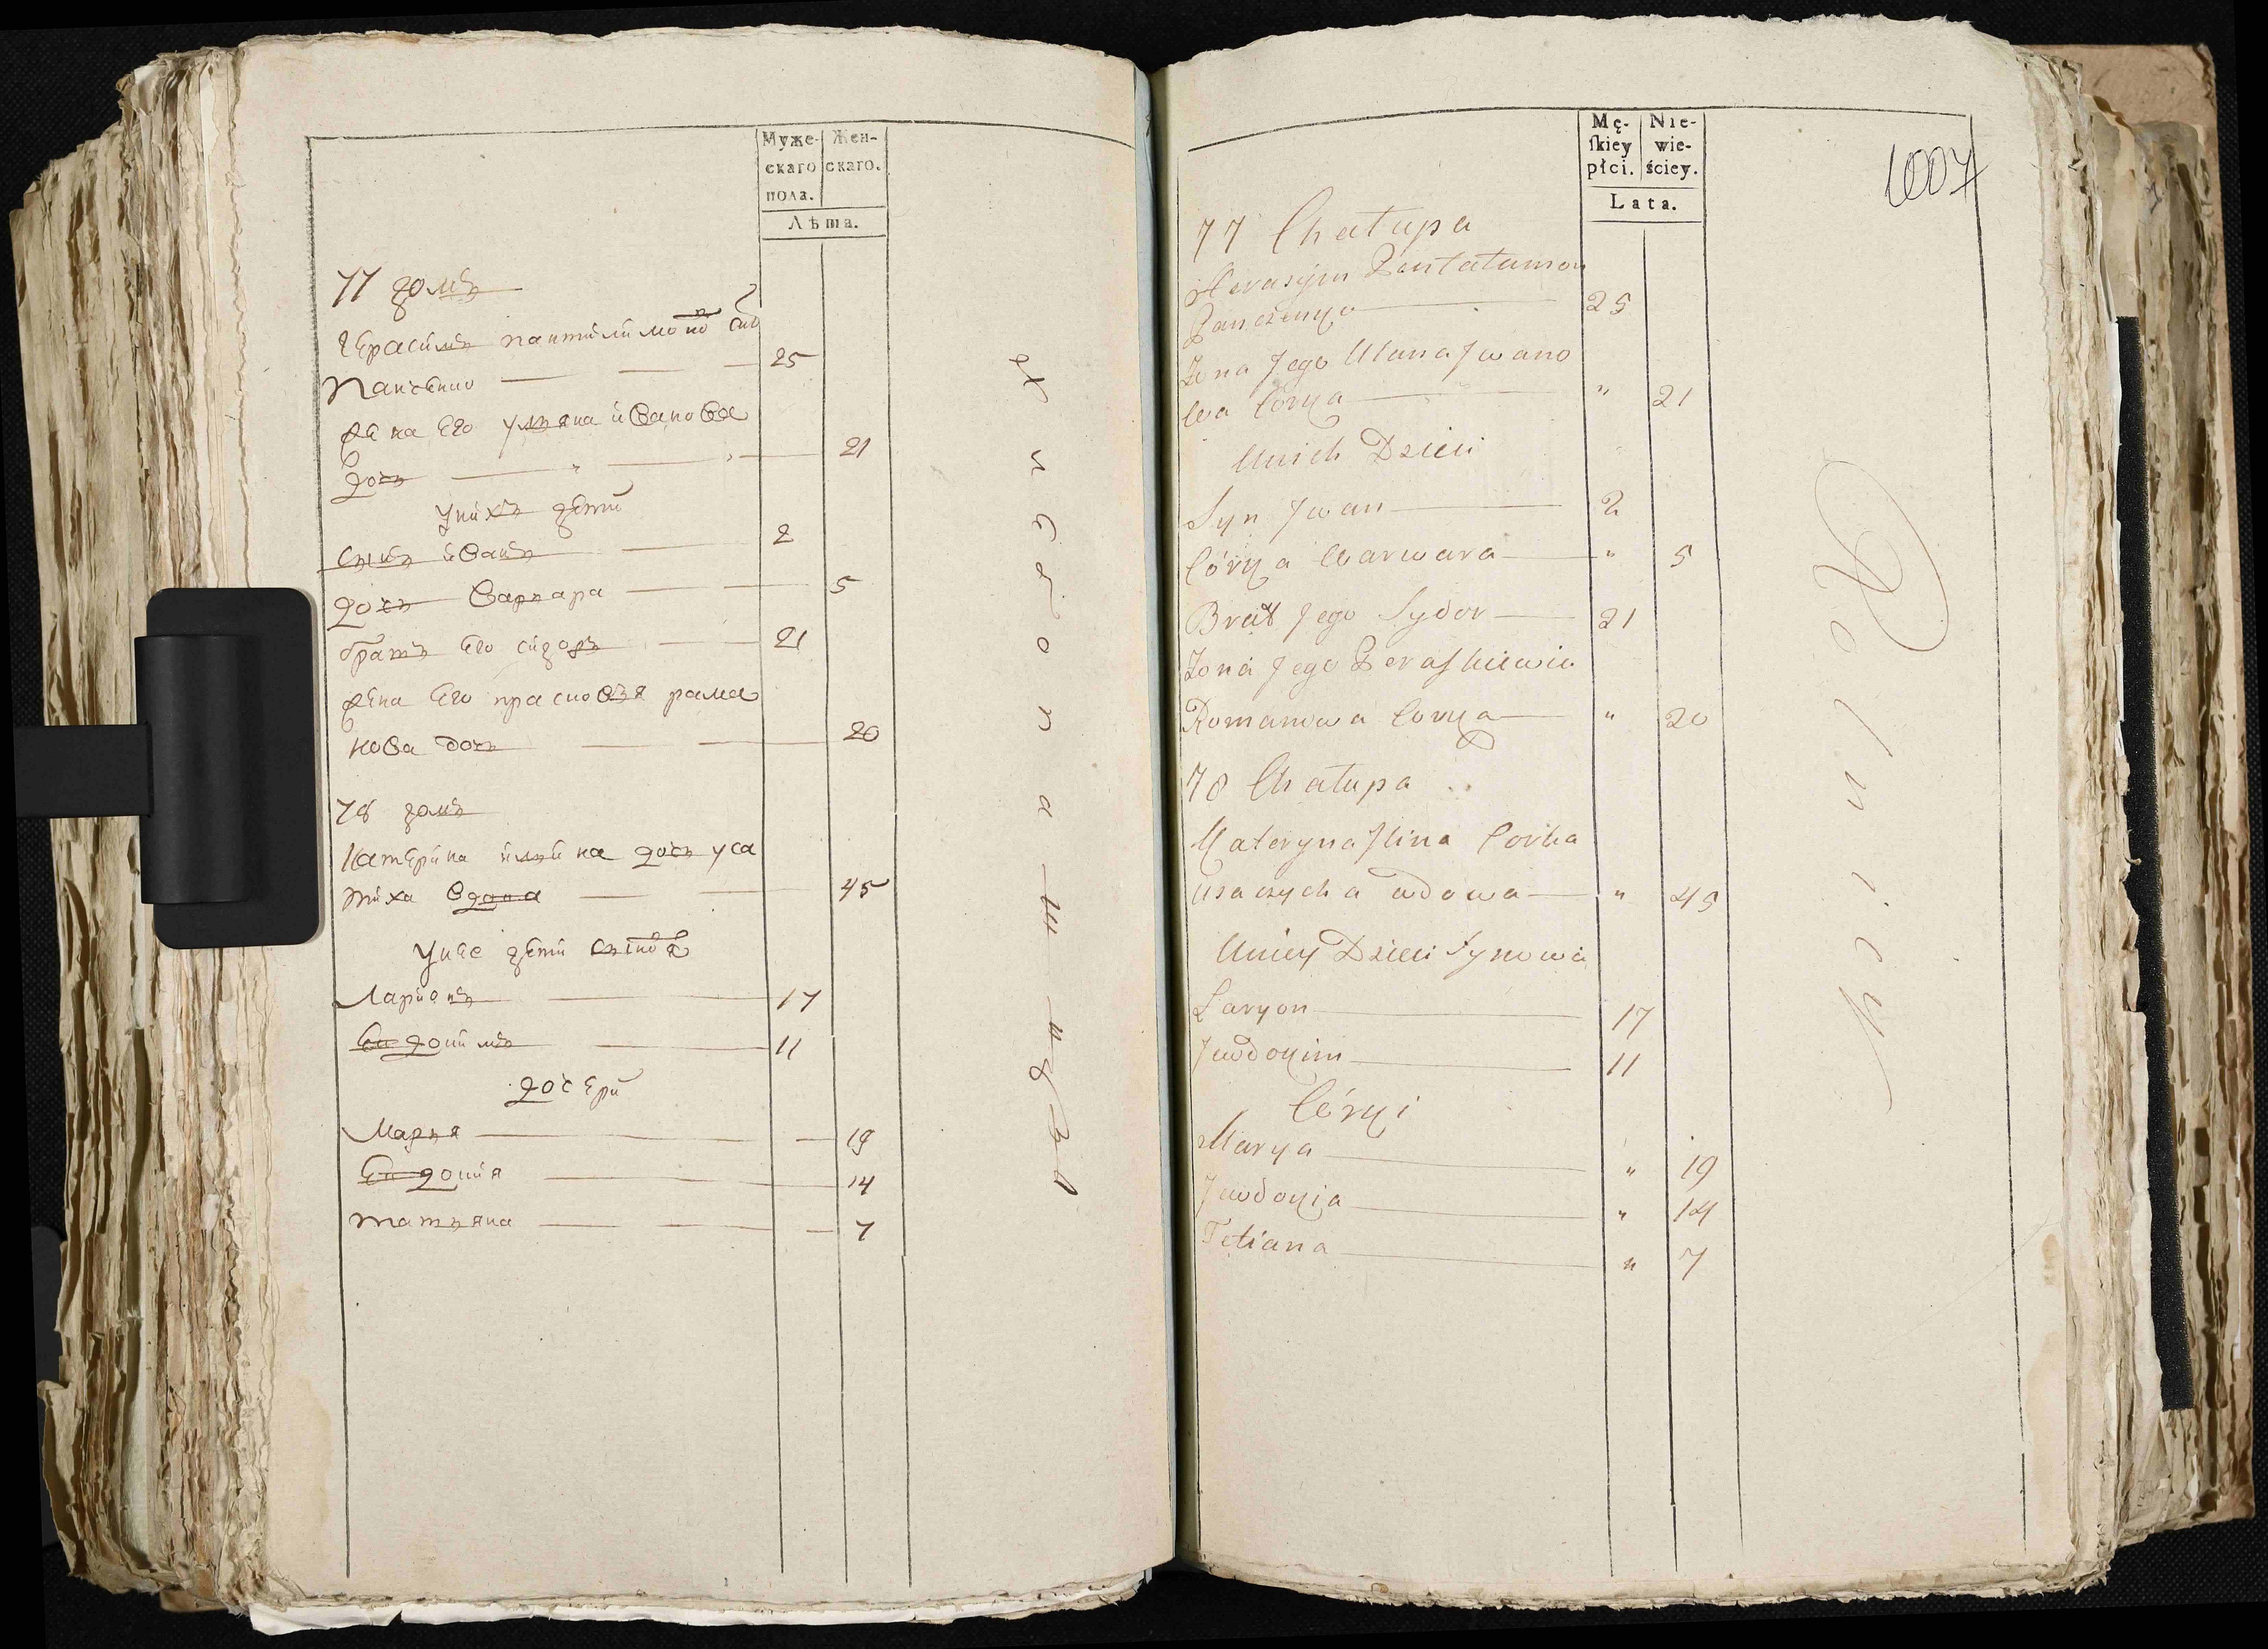 Муже-
скаго
пола.
Жен-
скаго.
Лѣта.
77 домъ
Герасимъ пантилимоновъ снъ
Панченко 25
жена Его ульяна иванова
дочь 21
у нихъ дети
сынъ иванъ 2
дочь варвара 5
братъ Его сидоръ 21
жена Его прасковья рама
нова дочь 20
78 домъ
Катерина ильина дочь уса
тиха вдова 45
у нее дети сыновя
Ларионъ 17
Евдокимъ 11
дочери
Марья 19
Евдокия 14
татьяна 7
Mę-
ſkiey
płci.
Nie-
wie-
ściey.
Lata.
1007
77 Chałupa
Herasym Pentałumon
Panczenko 25
Żona Jego Ulana Jwano
wa Córka " 21
Unich Dzieci
Syn Jwan 2
Córka Warwara " 5
Brat Jego Sydor 21
Żona Jego Peraskiewia
Romanowa Corka " 20
78 Chałupa
Kateryna Jlina Corka
Usaczycha wdowa " 45
Uniey Dzieci Synowia
Laryon 17
Jwdokim 11
Córki
Marya " 19
Jwdokia " 14
Tetiana " 7